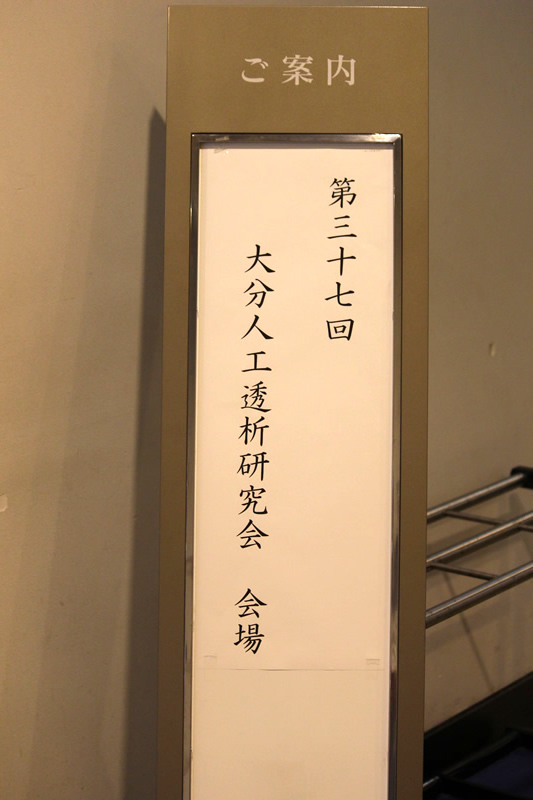 ご案内
第三十七回
大分人工透析研究会　会場